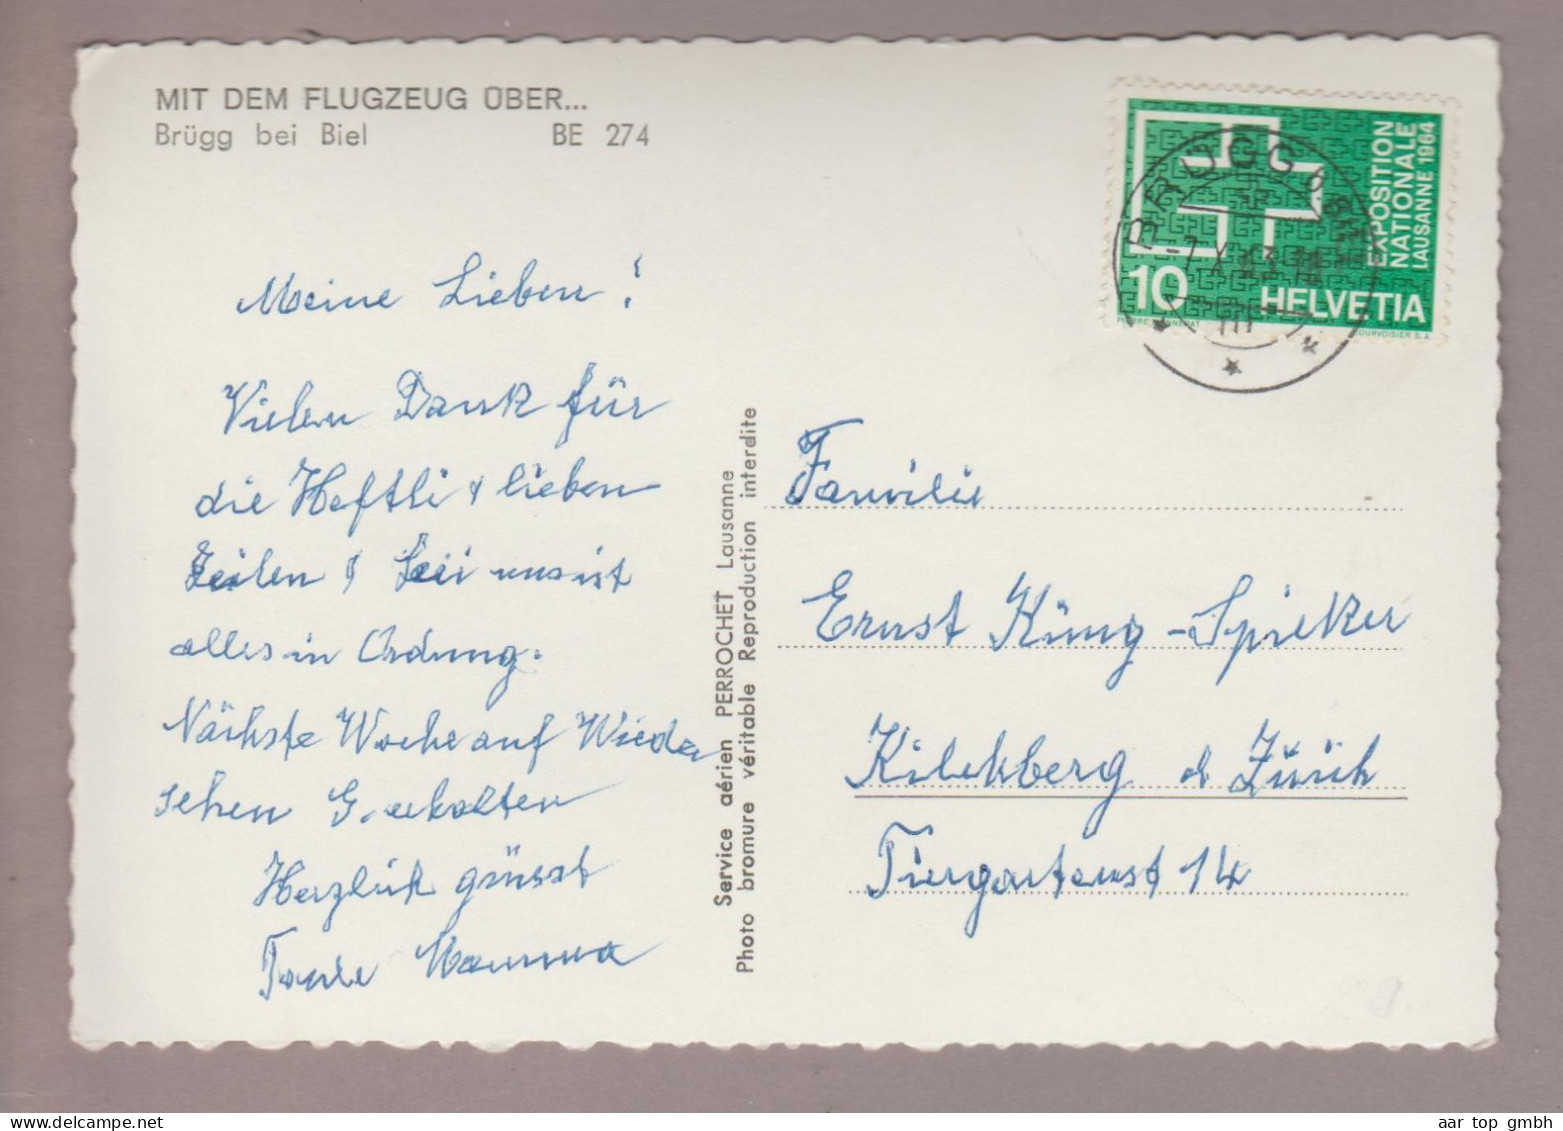 MIT DEM FLUGZEUG ÜBER...
Brügg bei Biel BE 274
Meine Lieben!
Vielen Dank für
die Heftli & lieben
Zeilen & bei uns ist
alles in Ordnung.
Nächste Woche auf Wieder
sehen
Herzlich grüsst
Tante Mamma
Service aérien PERROCHET Lausanne
Photo bromure véritable Reproduction interdite
EXPOSITION
NATIONALE
LAUSANNE 1964
10 HELVETIA
COURVOISIER S.A.
BRÜGG
Familie
Ernst Küng-Spieker
Kilchberg b Zürich
Tiergartenst 14
aar top gmbh